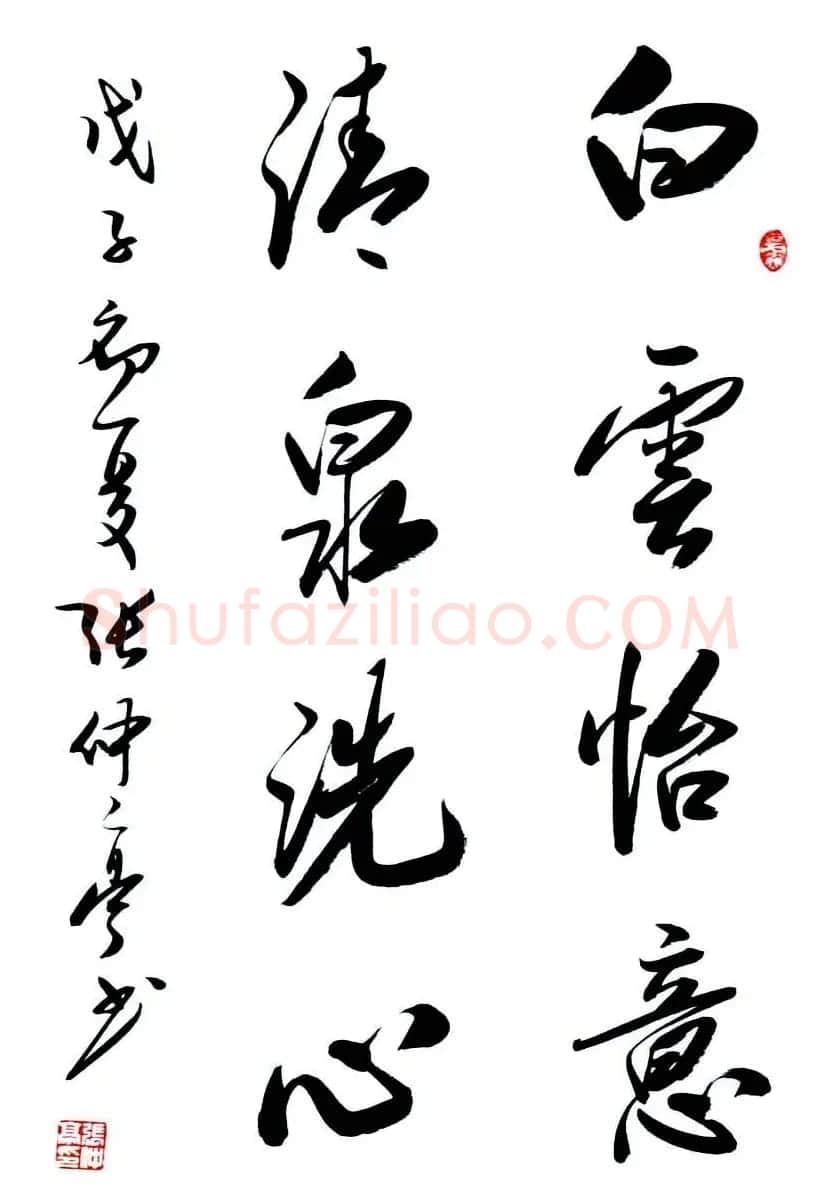 白雲怡意
清泉洗心
戊子初夏张仲亭书
張仲亭印
Shufaziliao.COM